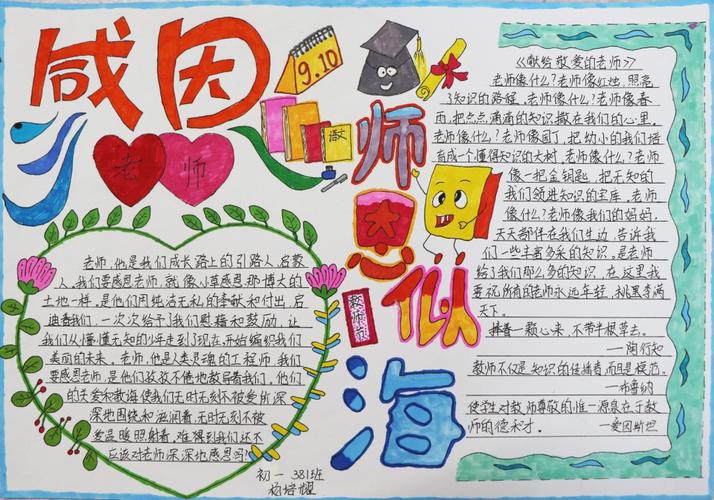 感因
9.10
老师
语
师恩似海
教师节
老师,他是我们成长路上的引路人,启蒙
人,我们要感恩老师,就像小草感恩那博大的
土地一样,是他们用纯洁无私的奉献和付出,启
迪着我们,一次次给予了我们慰藉和鼓励,让
我们从懵懂无知的少年走到了现在,开始编织我们
美丽的未来。老师,他是人类灵魂的工程师,我们
要感恩老师,是他们孜孜不倦地教导着我们,他们
的关爱和教诲使我们无时无刻不被爱所深
深地围绕和滋润着,无时无刻不被
爱温暖照射着,难得到我们还不
应该对老师深深地感恩吗?
初一381班
杨培耀
《献给敬爱的老师》
老师像什么?老师像红烛,照亮
了知识的路程。老师像什么?老师像春
雨,把点点滴滴的知识撒在我们的心里。
老师像什么?老师像园丁,把幼小的我们培
育成一个懂得知识的大树。老师像什么?老师
像一把金钥匙,把无知的
我们领进知识的宝库。老师
像什么?老师像我们的妈妈,
天天都伴在我们生边,告诉我
们一些丰富多采的知识。是老师
给了我们那么多的知识,在这里我
要祝所有的老师永远年轻,桃黑李满
天下。
捧着一颗心来,不带半根草去。
—陶行知
教师不仅是知识的传播者,而且是模范。
—布鲁纳
使学生对教师尊敬的惟一源泉在于教
师的德和才。 —爱因斯坦